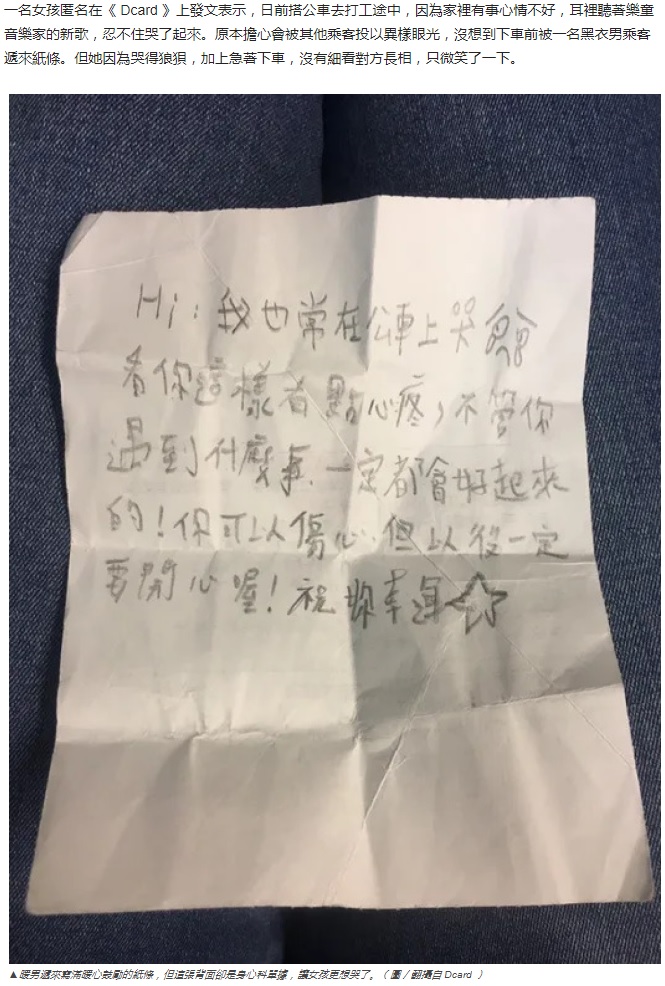 一名女孩匿名在《 Dcard 》上發文表示，日前搭公車去打工途中，因為家裡有事心情不好，耳裡聽著樂童
音樂家的新歌，忍不住哭了起來。原本擔心會被其他乘客投以異樣眼光，沒想到下車前被一名黑衣男乘客
遞來紙條。但她因為哭得狼狽，加上急著下車，沒有細看對方長相，只微笑了一下。
Hi：我也常在公車上哭
看你這樣有點心疼，不管你
遇到什麼事 一定都會好起來
的！你可以傷心 但以後一定
要開心喔！祝妳幸運☆
▲暖男遞來寫滿暖心鼓勵的紙條，但這張背面卻是身心科單據，讓女孩更想哭了。（圖／翻攝自 Dcard ）